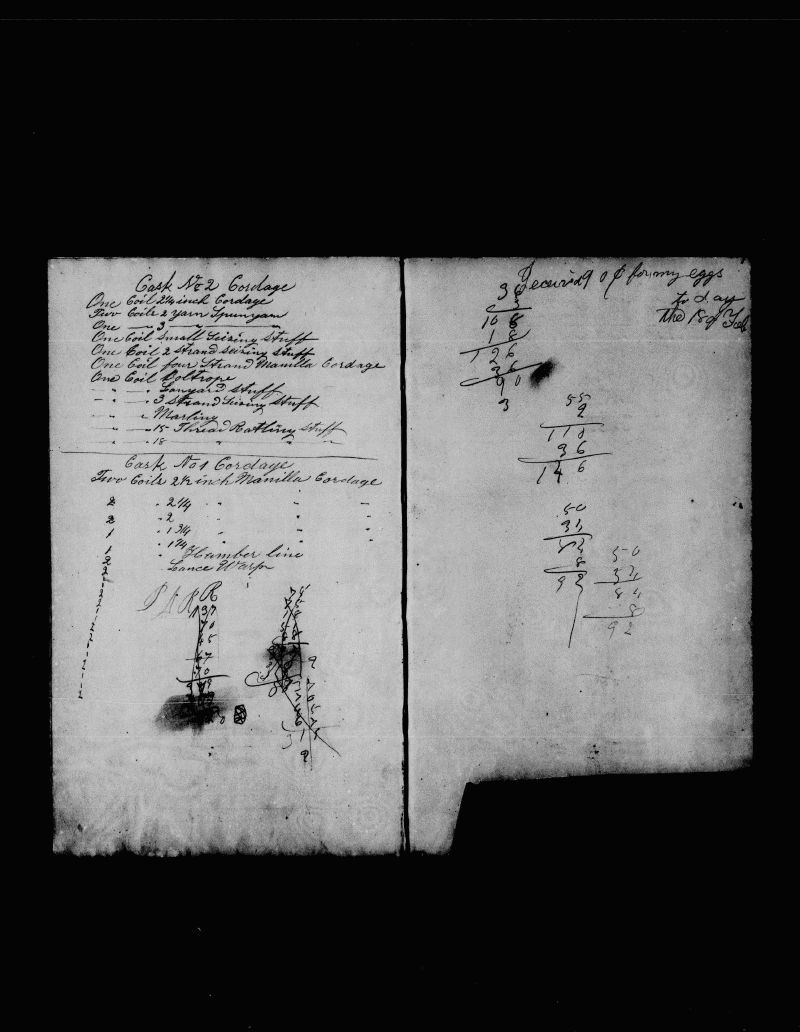 Cask No 2 Cordage
One Coil 2¼ inch Cordage
Two Coils 2 yarn Spunyarn
One " 3 " "
One Coil Small Seizing Stuff
One Coil 2 Strand Seizing Stuff
One Coil four Strand Manilla Cordage
One Coil Boltrope
" " Lanyard Stuff
" " 3 Strand Seizing Stuff
" " Marling
" " 15 Thread Ratling Stuff
" " 18 " " "
Cask No 1 Cordage
Two Coils 2½ inch Manilla Cordage
2 " 2¼ " " "
2 " 2 " " "
1 " 1¾ " "
1 " 1¼
2 " Hamber line
2 Lance Warp
PARR
Received 90 ¢ for my eggs
to day
the 18 of Feb
36
3
108
18
126
36
90
3
55
2
110
36
146
50
34
84
8
92
50
34
84
8
92